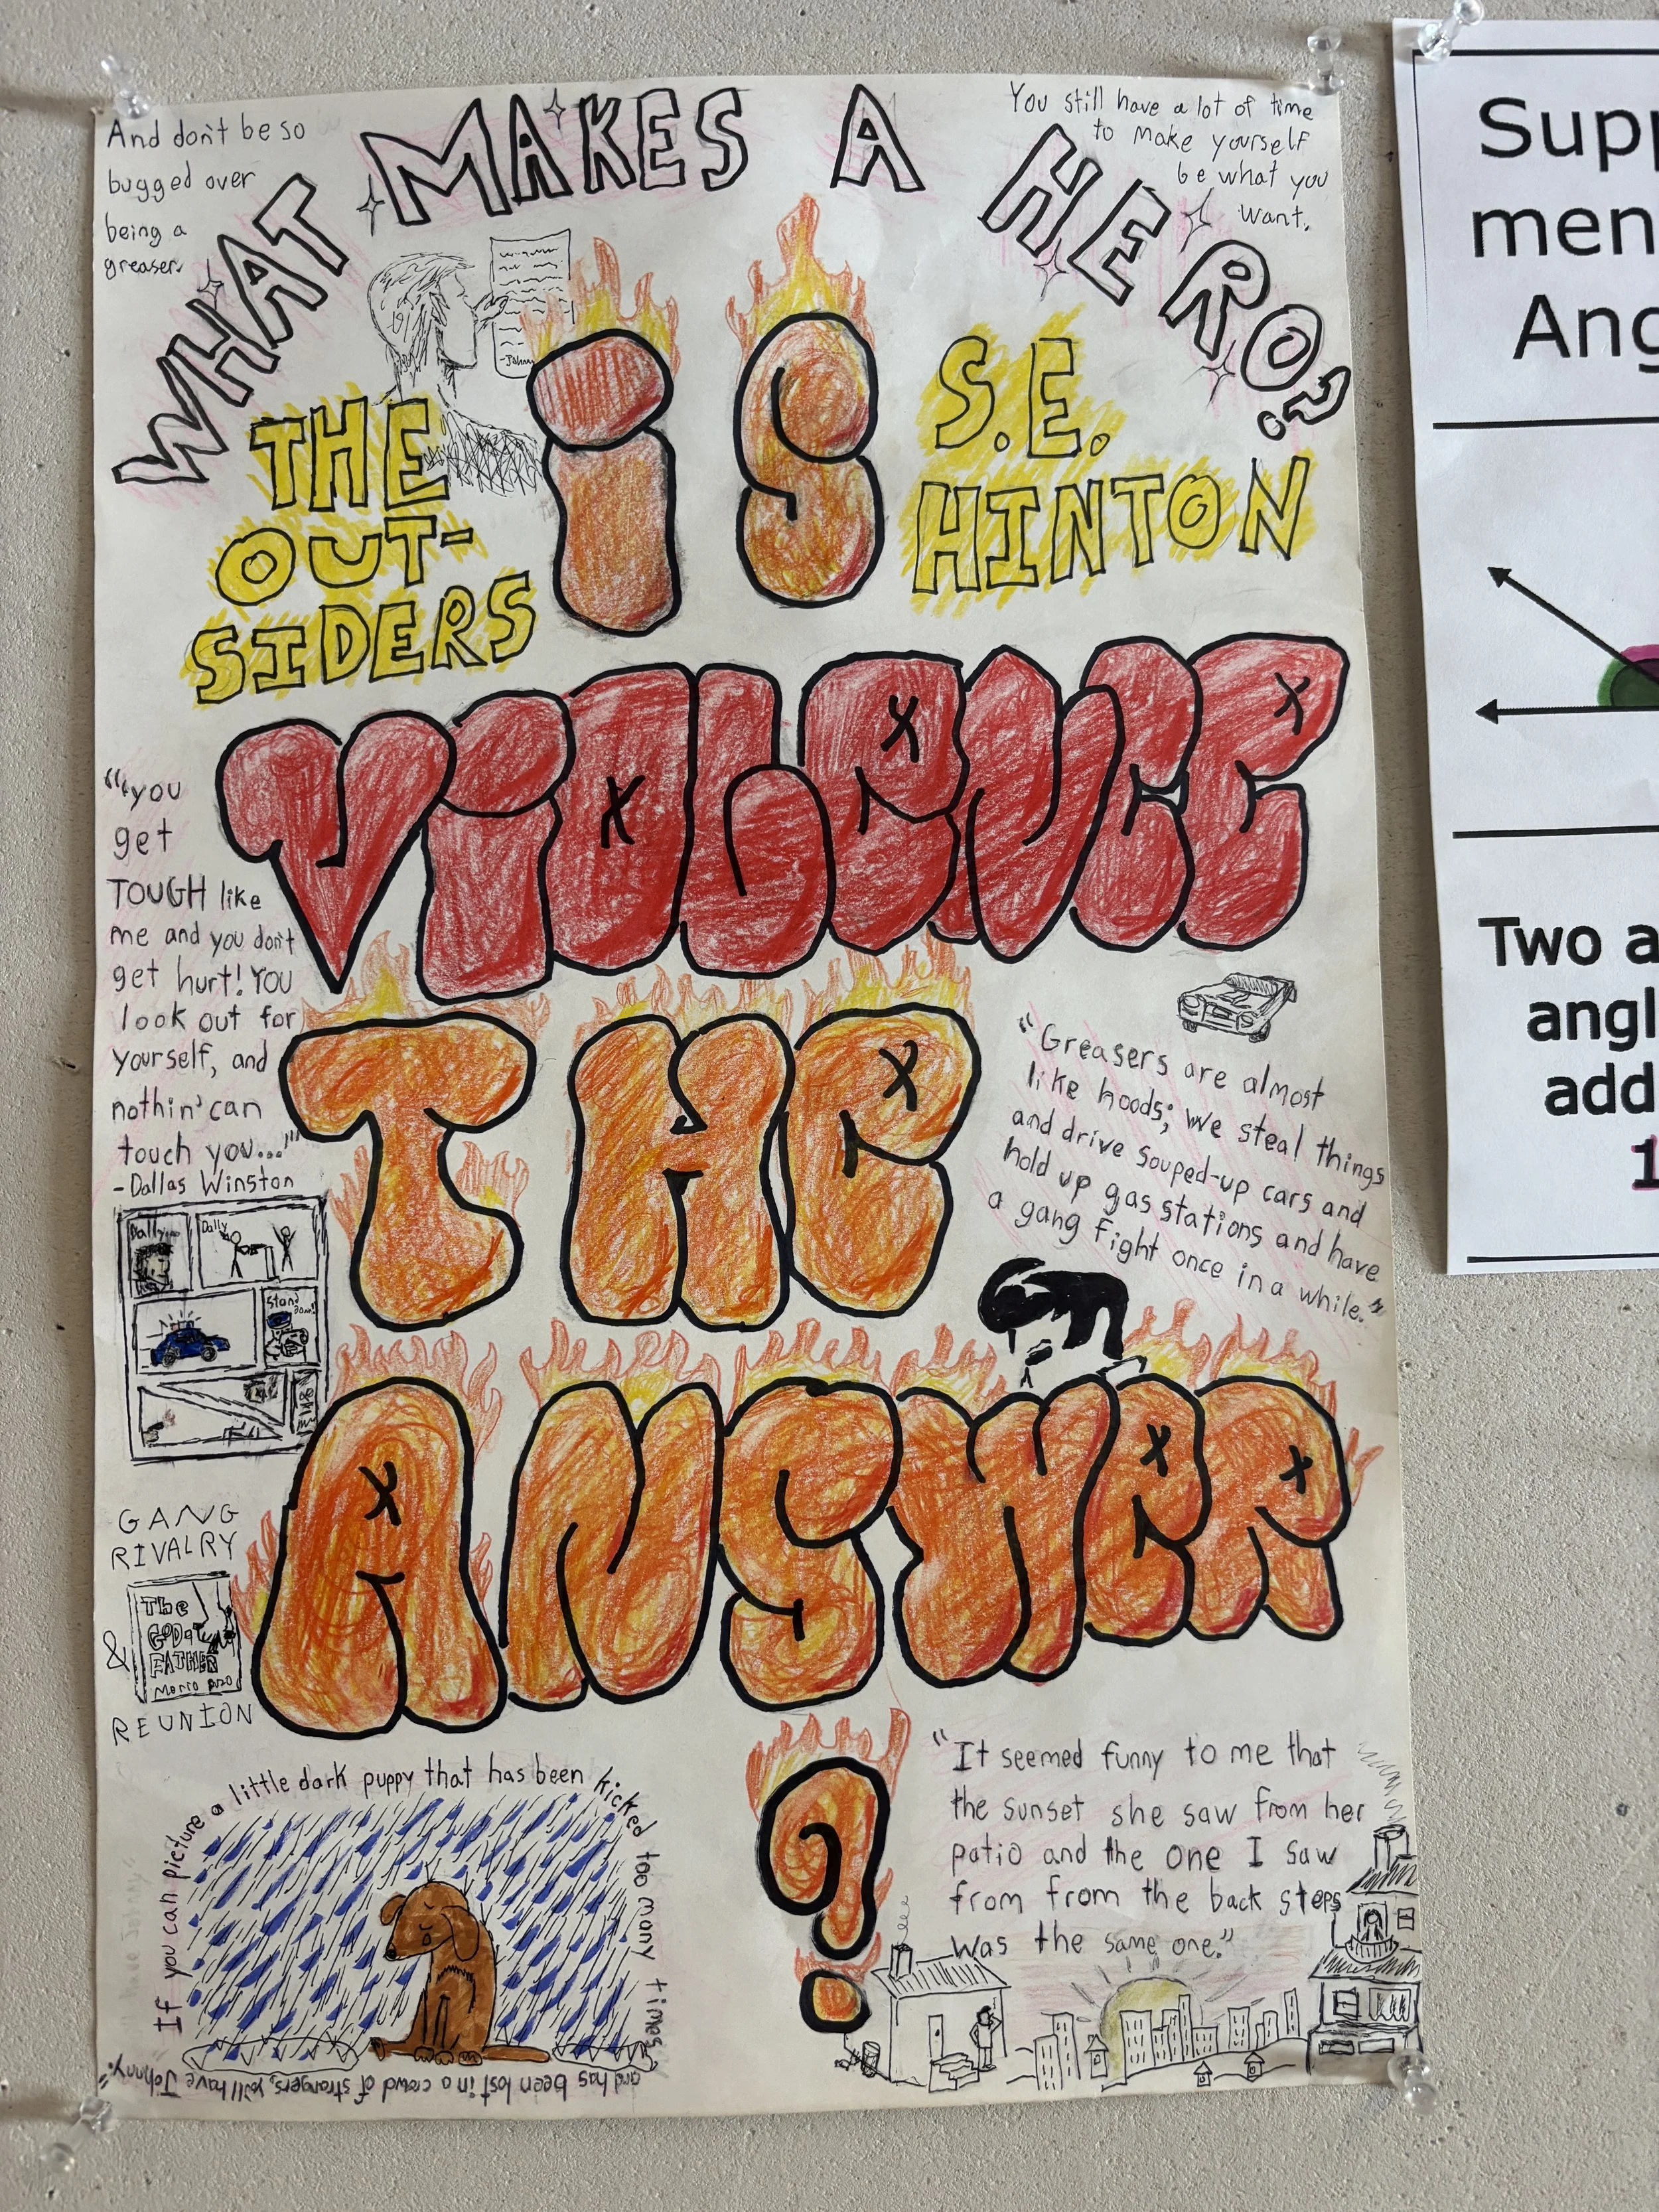 And don't be so
bugged over
being a
greaser.
WHAT MAKES A HERO?
You still have a lot of time
to make yourself
be what you
want.
THE
OUT-
SIDERS
iS
S.E.
HINTON
ViOLENCE
THE
ANSWER
?
"'you
get
TOUGH like
me and you don't
get hurt! You
look out for
yourself, and
nothin' can
touch you..."'
-Dallas Winston
"Greasers are almost
like hoods; we steal things
and drive souped-up cars and
hold up gas stations and have
a gang fight once in a while."
Dally...
Dally
Stand
GANG
RIVALRY
&
The
GOD
FATHER
Mario Puzo
REUNION
If you can picture a little dark puppy that has been kicked too many times
and has been lost in a crowd of strangers, you'll have Johnny."
"It seemed funny to me that
the sunset she saw from her
patio and the one I saw
from from the back steps
was the same one."
Supp
men
Ang
Two a
angl
add
1